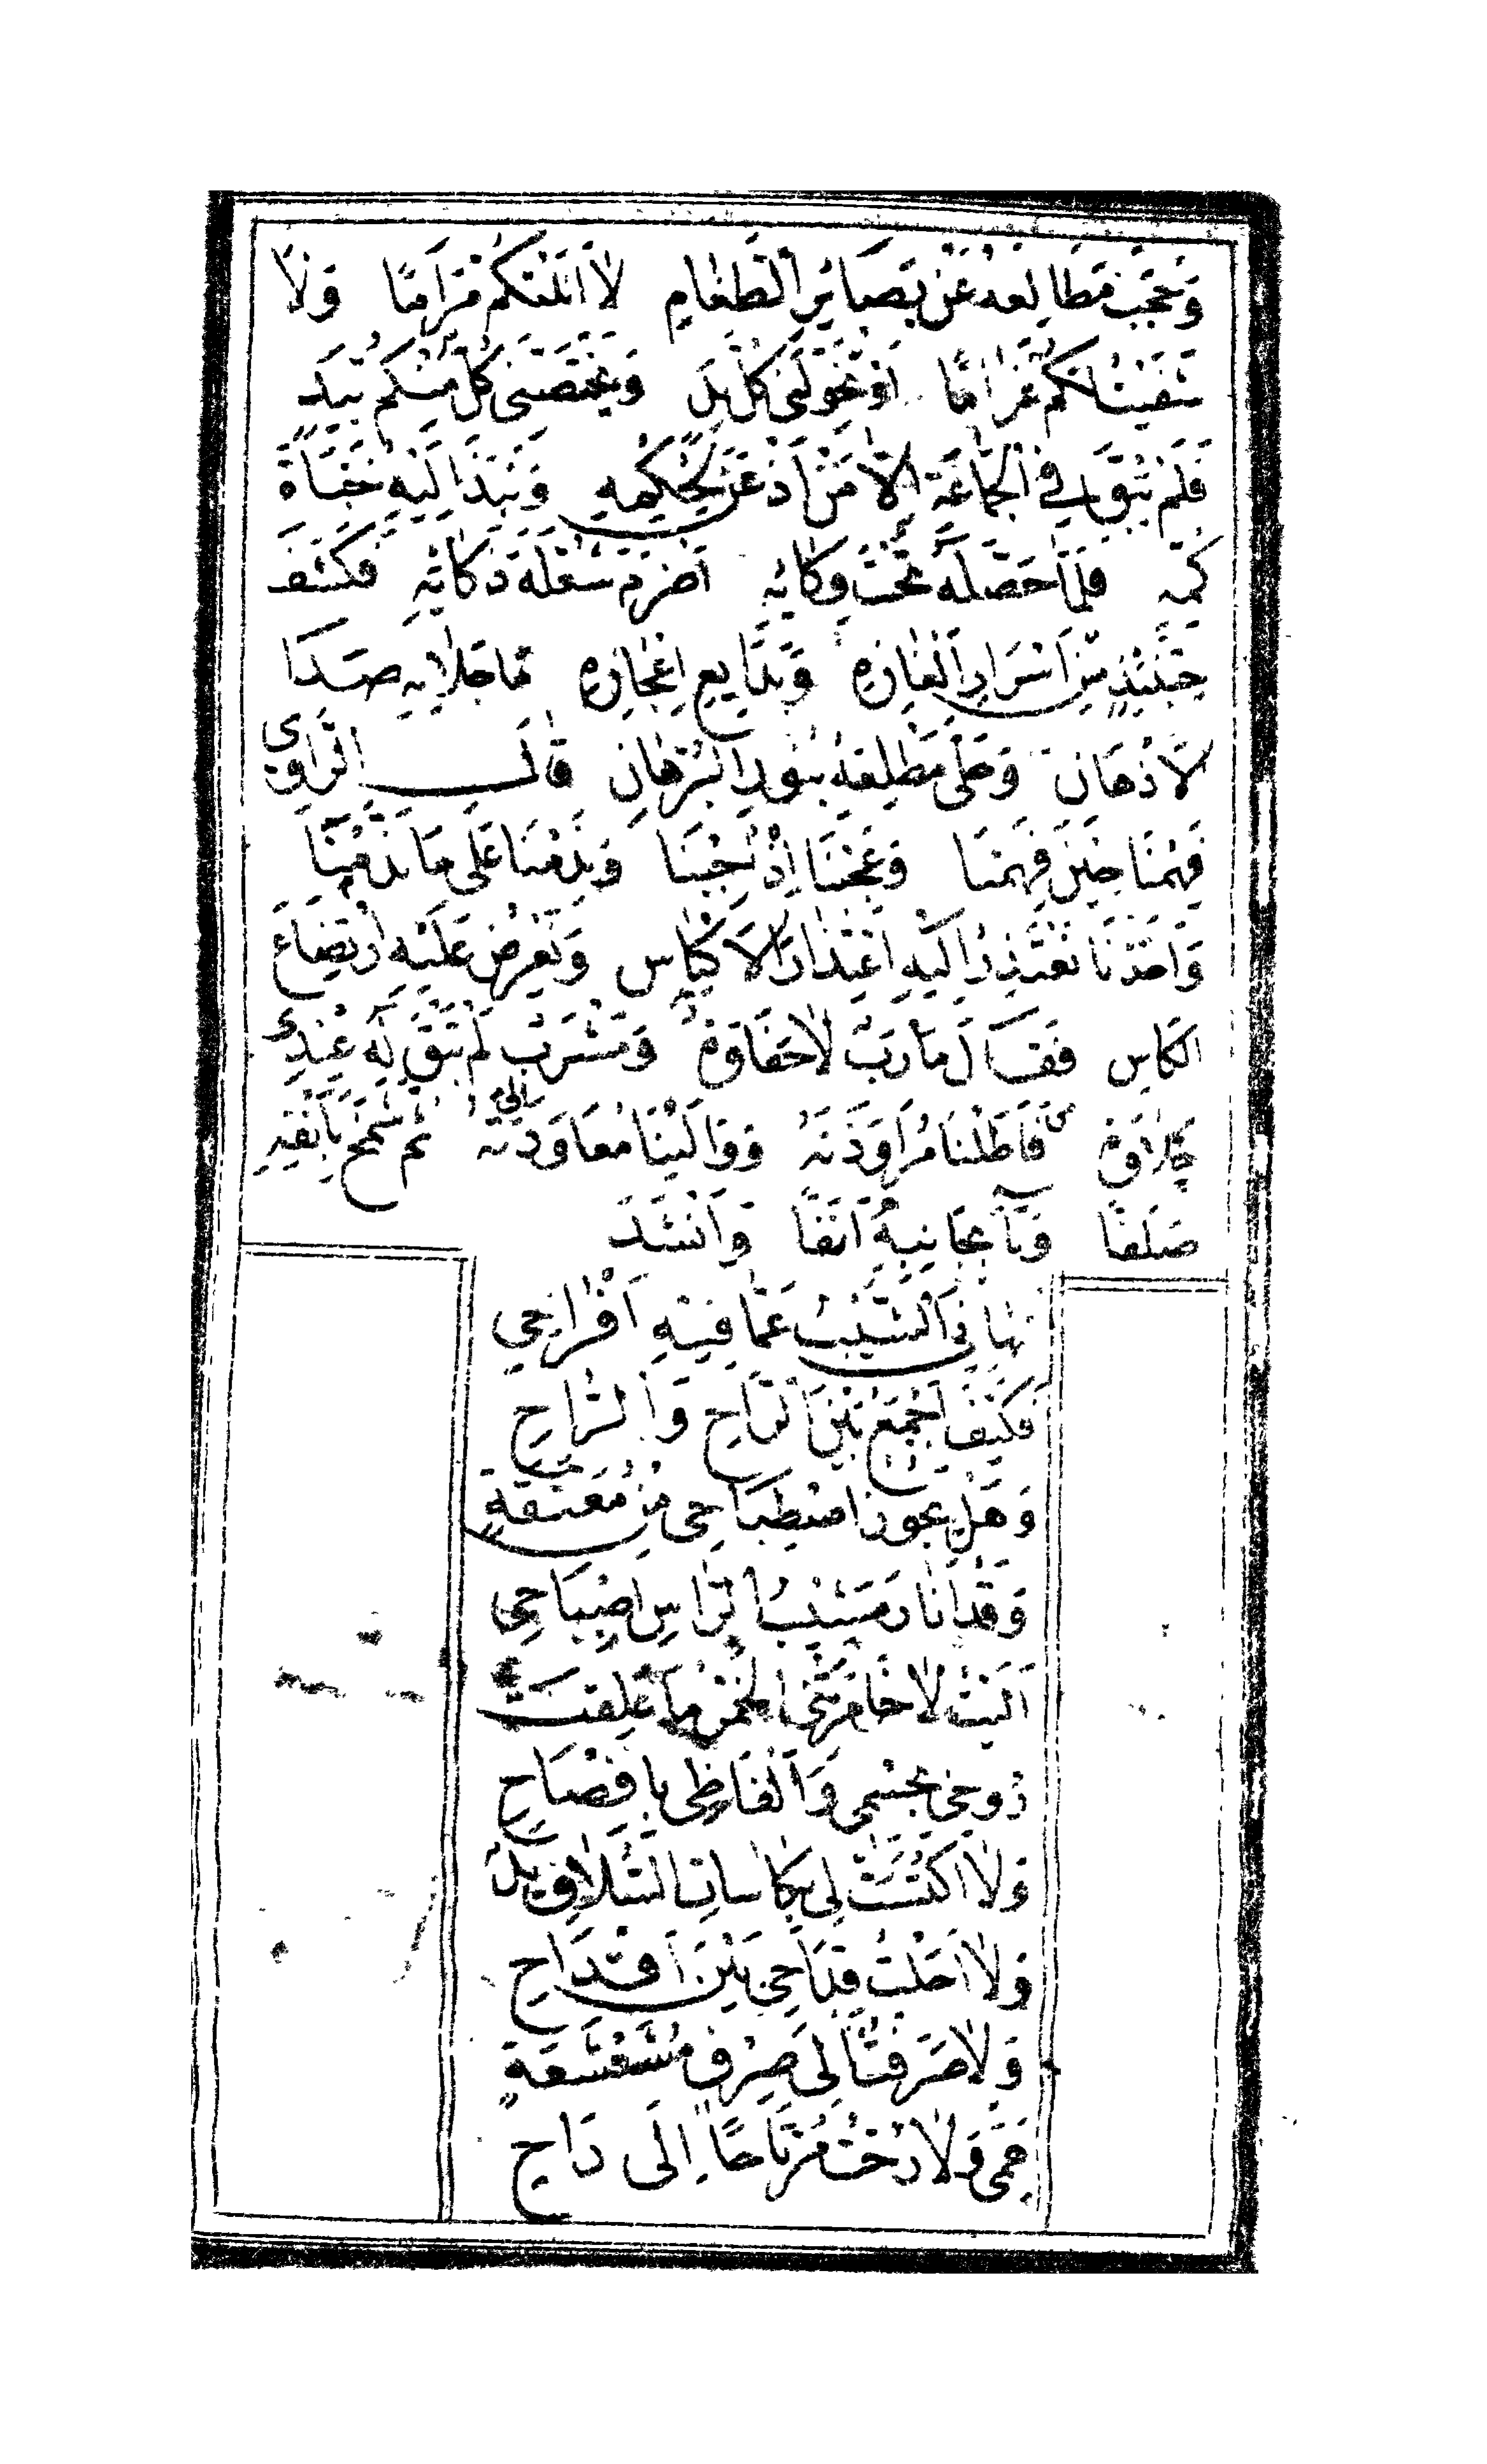 وَحَجَبَ مَطَالِعَهُ عَنْ بَصَائِرِ الطَّغَامِ لَا انَلْتُكُمْ مَرَامًا وَلَا
شَفَيْتُ لَكُمْ غَرَامًا اَوْ تُخَوِّلَنِى كُلُّ يَدٍ وَيَخْتَصَّنِى كُلٌّ مِنْكُمْ بِيَدٍ
فَلَمْ يَبْقَ فِي الْجَمَاعَةِ اِلَّا مَنْ اَذْعَنَ لِحُكْمِهِ وَنَبَذَ اِلَيْهِ خَبْأَةَ
كُمِّهِ فَلَمَّا حَصَّلَهُ تَحْتَ وِكَائِهِ اَضْرَمَ شُعْلَةَ ذَكَائِهِ فَكَشَفَ
حِينَئِذٍ مِنْ اَسْرَارِ اَلْغَازِهِ وَبَدَايِعِ اِعْجَازِهِ مَا جَلَا بِهِ صَدَا
لَاذْهَانِ وَجَلَّى مَطْلِعَهُ بِنُورِ الْبُرْهَانِ قَالَ الرَّاوِى
فَهِمْنَا حِينَ فَهِمْنَا وَعَجِبْنَا اِذْ اُجِبْنَا وَنَدِمْنَا عَلَى مَا نَدَّ مِنَّا
وَاَخَذْنَا نَعْتَذِرُ اِلَيْهِ اعْتِذَارَ الْاَكْيَاسِ وَنَعْرِضُ عَلَيْهِ ارْتِضَاعَ
الْكَاسِ فَقَالَ مَأْرَبٌ لَا حَفَاوَةٌ وَمَشْرَبٌ لَمْ يَبْقَ لَهُ عِنْدِى
حَلَاوَةٌ فَاَطَلْنَا مُرَاوَدَتَهُ وَوَالَيْنَا مُعَاوَدَتَهُ ثُمَّ شَمَخَ بِاَنْفِهِ
صَلَفًا وَنَأَى بِجَانِبِهِ اَنَفًا وَاَنْشَدَ
نَهَانِيَ الشَّيْبُ عَمَّا فِيْهِ اَفْرَاحِي
فَكَيْفَ اَجْمَعُ بَيْنَ الرَّاحِ وَالرَّاحِ
وَهَلْ يَجُوزُ اصْطِبَاحِى مِنْ مُعَتَّقَةٍ
وَقَدْ اَنَارَ مَشِيْبُ الرَّاسِ اِصْبَاحِى
آلَيْتُ لَا خَامَرَتْنِى الْخَمْرُ مَا عَلِقَتْ
رُوحِى بِجِسْمِى وَاَلْفَاظِى بِاِفْصَاحِ
وَلَا اكْتَسَتْ لِى بِكَاسَاتِ السُّلَافِ يَدٌ
وَلَا اَجَلْتُ قِدَاحِى بَيْنَ اَقْدَاحِ
وَلَا صَرَفْتُ اِلَى صِرْفٍ مُشَعْشَعَةٍ
هَمِّى وَلَا رُحْتُ مُرْتَاحًا اِلَى رَاحِ